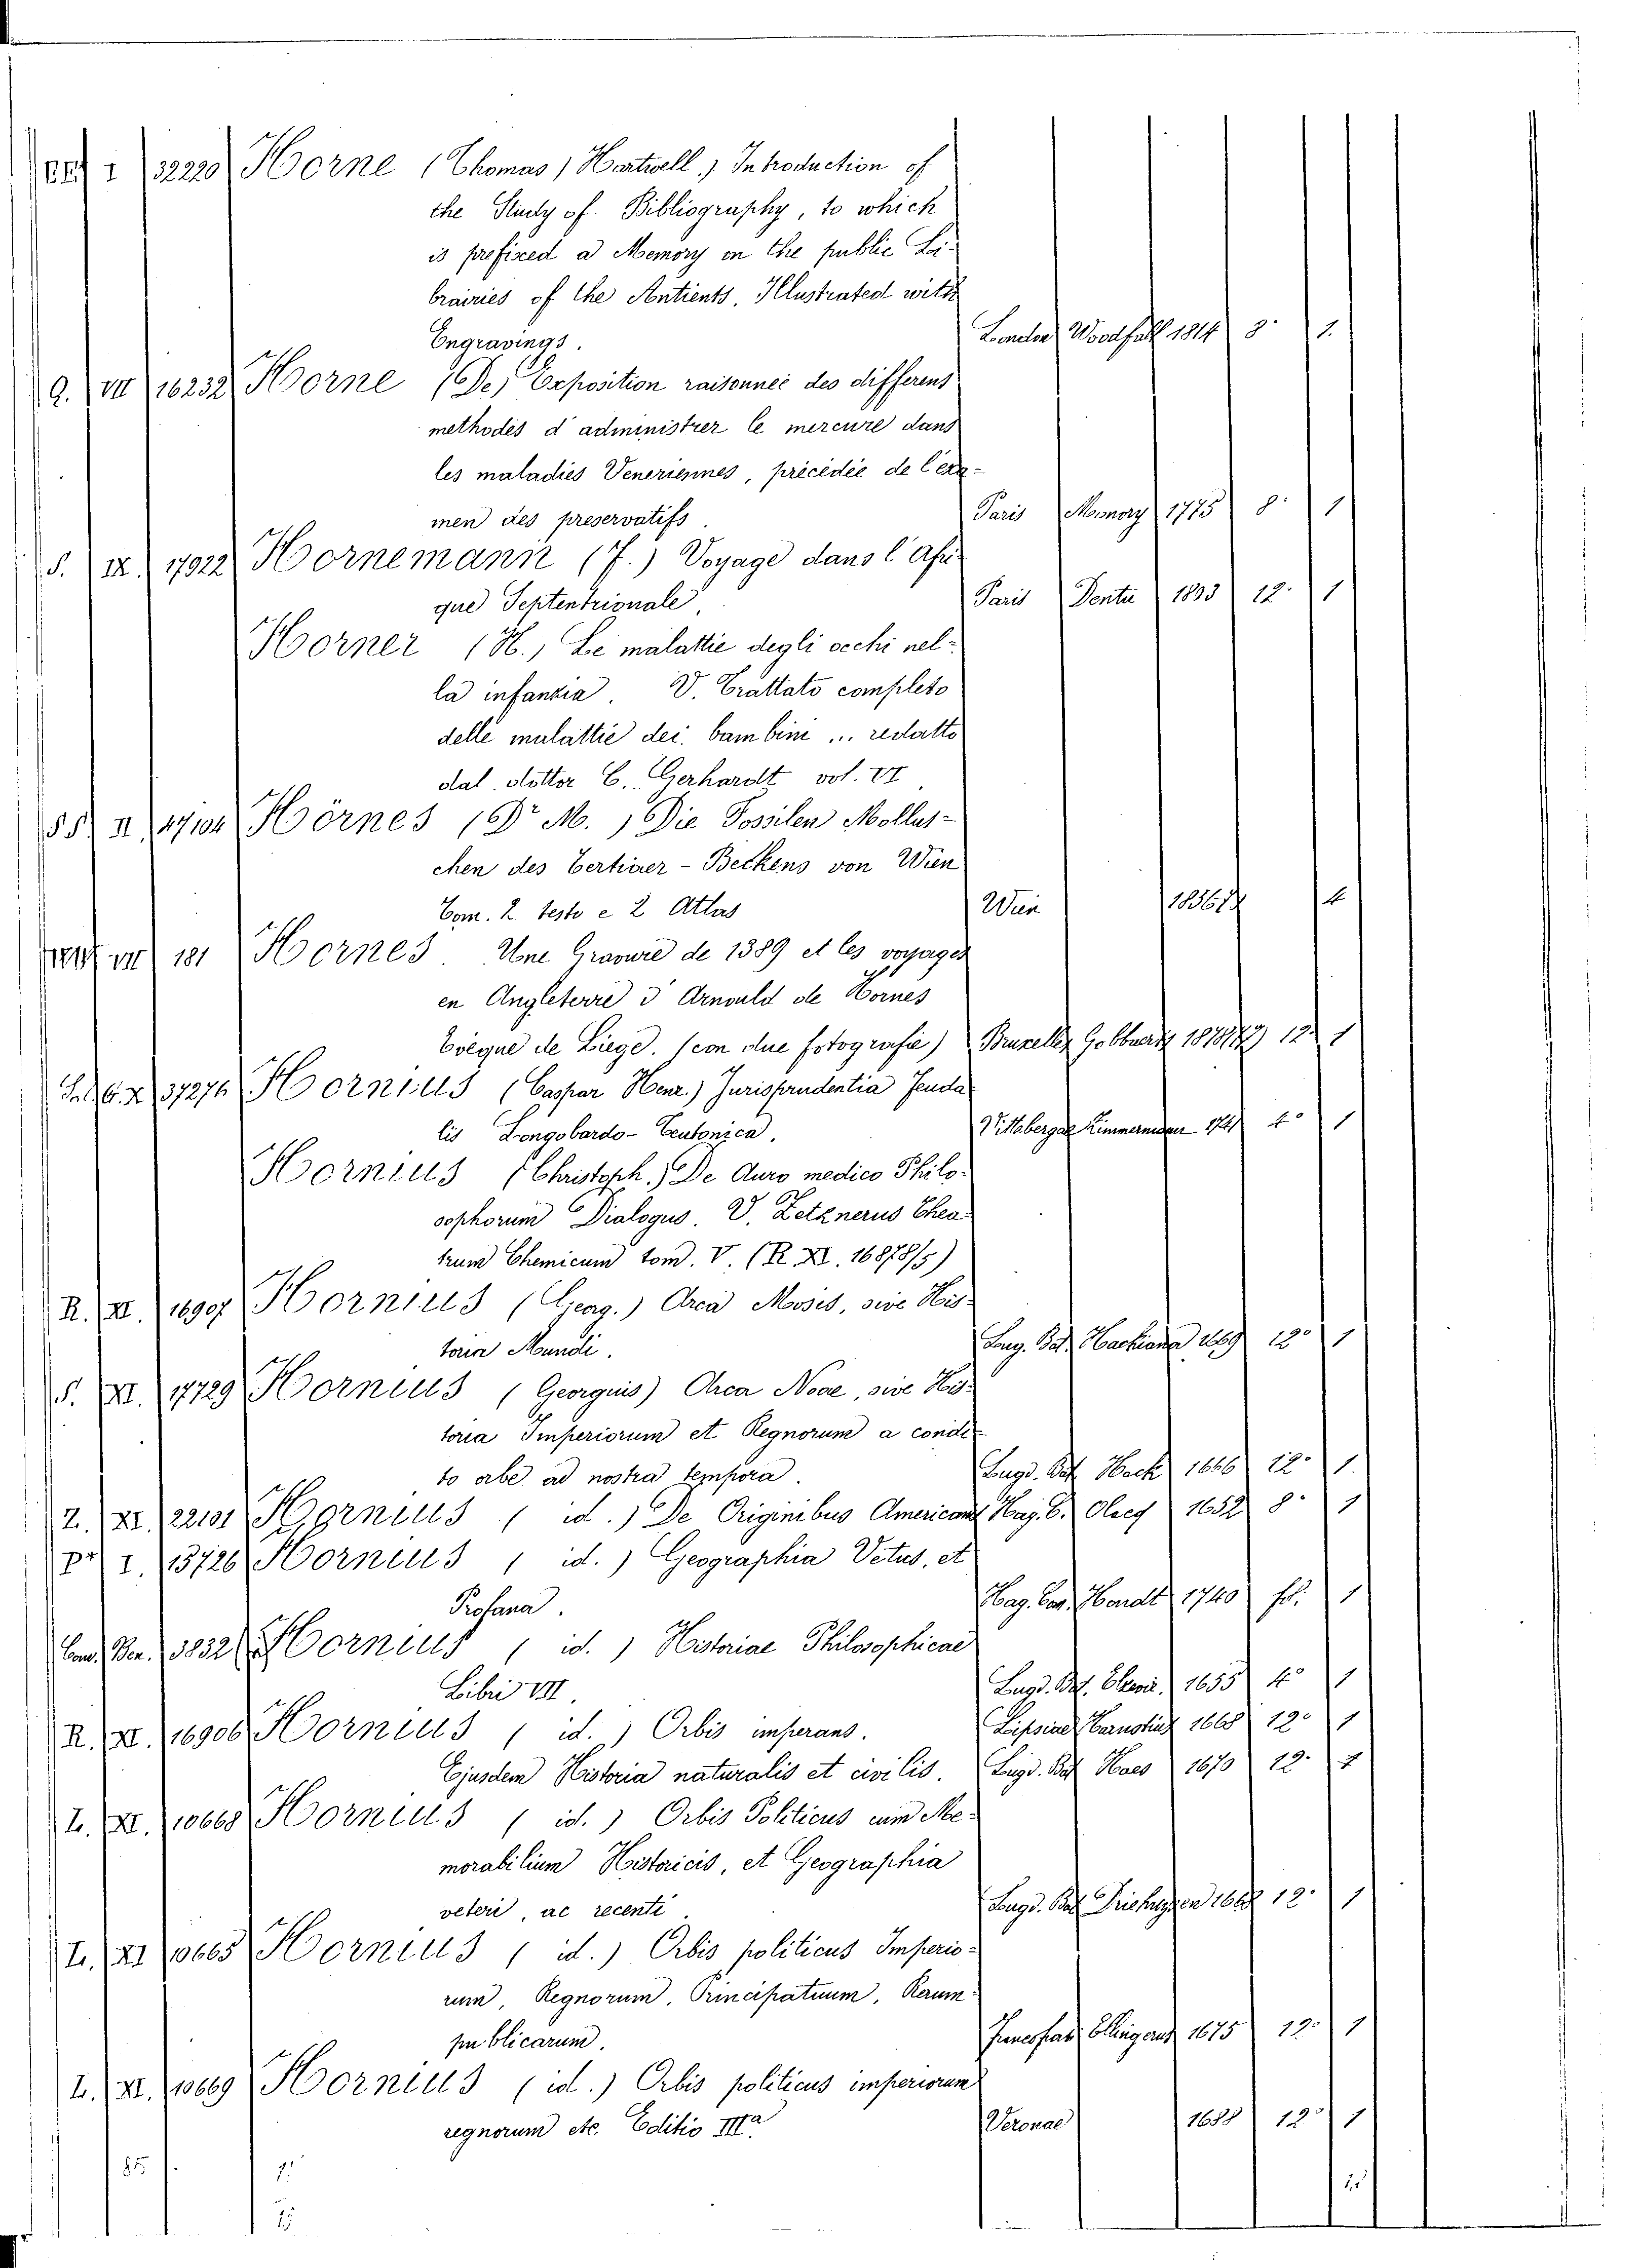 32220 Horne (Thomas) Hartwell) Introduction of
the Study of Bibliography, to which
is prefixed a Memory on the public Li-
brairies of the Antients, Illustrated with
Engravings. London Woodfall 1814 8° 1.
Q. VII 16232 Horne (De) Exposition raisonneé des differens
methodes d'administrer le mercure dans
les maladies Veneriennes, précédée de l'exa-
men des preservatifs. Paris Monory 1775 8° 1
S. IX. 17922 Hornemann (F.) Voyage dans l'Afri-
que Septentrionale. Paris Dentu 1803 12° 1
Horner (H.) Le malattie degli occhi nel-
la infanzia. V. Trattato completo
delle malattie dei bambini ... redatto
dal dottor C. Gerhardt vol. VI
SS. II 47104 Hörnes (Dr M.) Die Fossilen Mollus-
chen des Tertiärer-Beckens von Wien
Tom. 2 testo e 2 Atlas Wien 4
VII 181 Hornes. Une Gravure de 1389 et les voyages
en Angleterre d'Arnould de Hornes
Evêque de Liege. (con due fotografie) Bruxelles 12° 1
X 37276 Hornius (Caspar Henr.) Jurisprudentia feuda
lis Longobardo-Teutonica. Vittebergae Zimmermann 4° 1
Hornius (Christoph.) De Auro medico Philo-
sophorum Dialogus. V. Zetznerus Thea-
trum Chemicum tom. V. (R. XI. 16878/5)
R. XI. 16907 Hornius (Georg.) Arca Mosis, sive His-
toria Mundi. Lug. Bat. Hackiana 1669 12° 1
S. XI. 17729 Hornius (Georguis) Arca Noae, sive His-
toria Imperiorum et Regnorum a condi-
to orbe ad nostra tempora. Lugd. Bat. Hack 1666 12° 1.
Z. XI. 22101 Hornius (id.) De Originibus Americanis Hag. C. Olacq 1652 8° 1
I. 13726 Hornius (id.) Geographia Vetus, et
Profana. Hag. Com. Hondt 1740 fol. 1
3832 Hornius (id.) Historiae Philosophicae
Libri VII. Lugd. Bat. Elzevir. 1655 4° 1
R. XI. 16906 Hornius (id.) Orbis imperans. Lipsiae 1668 12° 1
Ejusdem Historia naturalis et civilis. Lugd. Bat. Haes 1670 12° 1
L. XI. 10668 Hornius (id.) Orbis Politicus cum Me-
morabilium Historicis, et Geographia
veteri, ac recenti. Lugd. Bat. 12° 1
L. XI 10665 Hornius (id.) Orbis politicus Imperio-
rum, Regnorum, Principatuum, Rerum-
publicarum. 1675 12° 1
L. XI. 10669 Hornius (id.) Orbis politicus imperiorum
regnorum etc. Editio IIIa Veronae 1688 12° 1
85